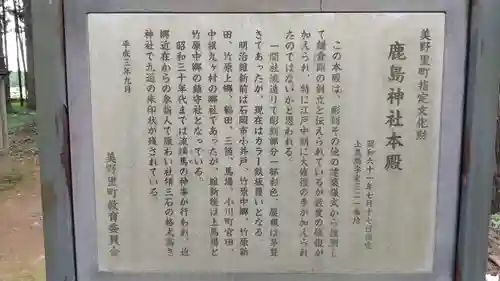 美野里町指定文化財
鹿島神社本殿
昭和六十一年七月十七日指定
上馬場字東三二一番地
この本殿は、彫刻その他の建築様式から推測し
て鎌倉期の創立と伝えられているが幾度の修復が
加えられ、特に江戸中期に大修理の手が加えられ
たのではないかと思われる。
一間社流造りで彫刻部分一部彩色、屋根は草葺
きであったが、現在はカラー鉄板覆いとなる
明治維新前は石岡市小井戸、竹原中郷、竹原新
田、竹原上郷、鶴田、三箇、馬場、小川町宮田、
中根九ヶ村の郷社であったが、維新後は上馬場と
竹原中郷の鎮守社となっている。
昭和三十年代までは流鏑馬の神事が行われ、近
郷近在からの参詣人で賑わい社領三石の格式高き
神社で九通の朱印状が残されている。
平成三年九月
美野里町教育委員会